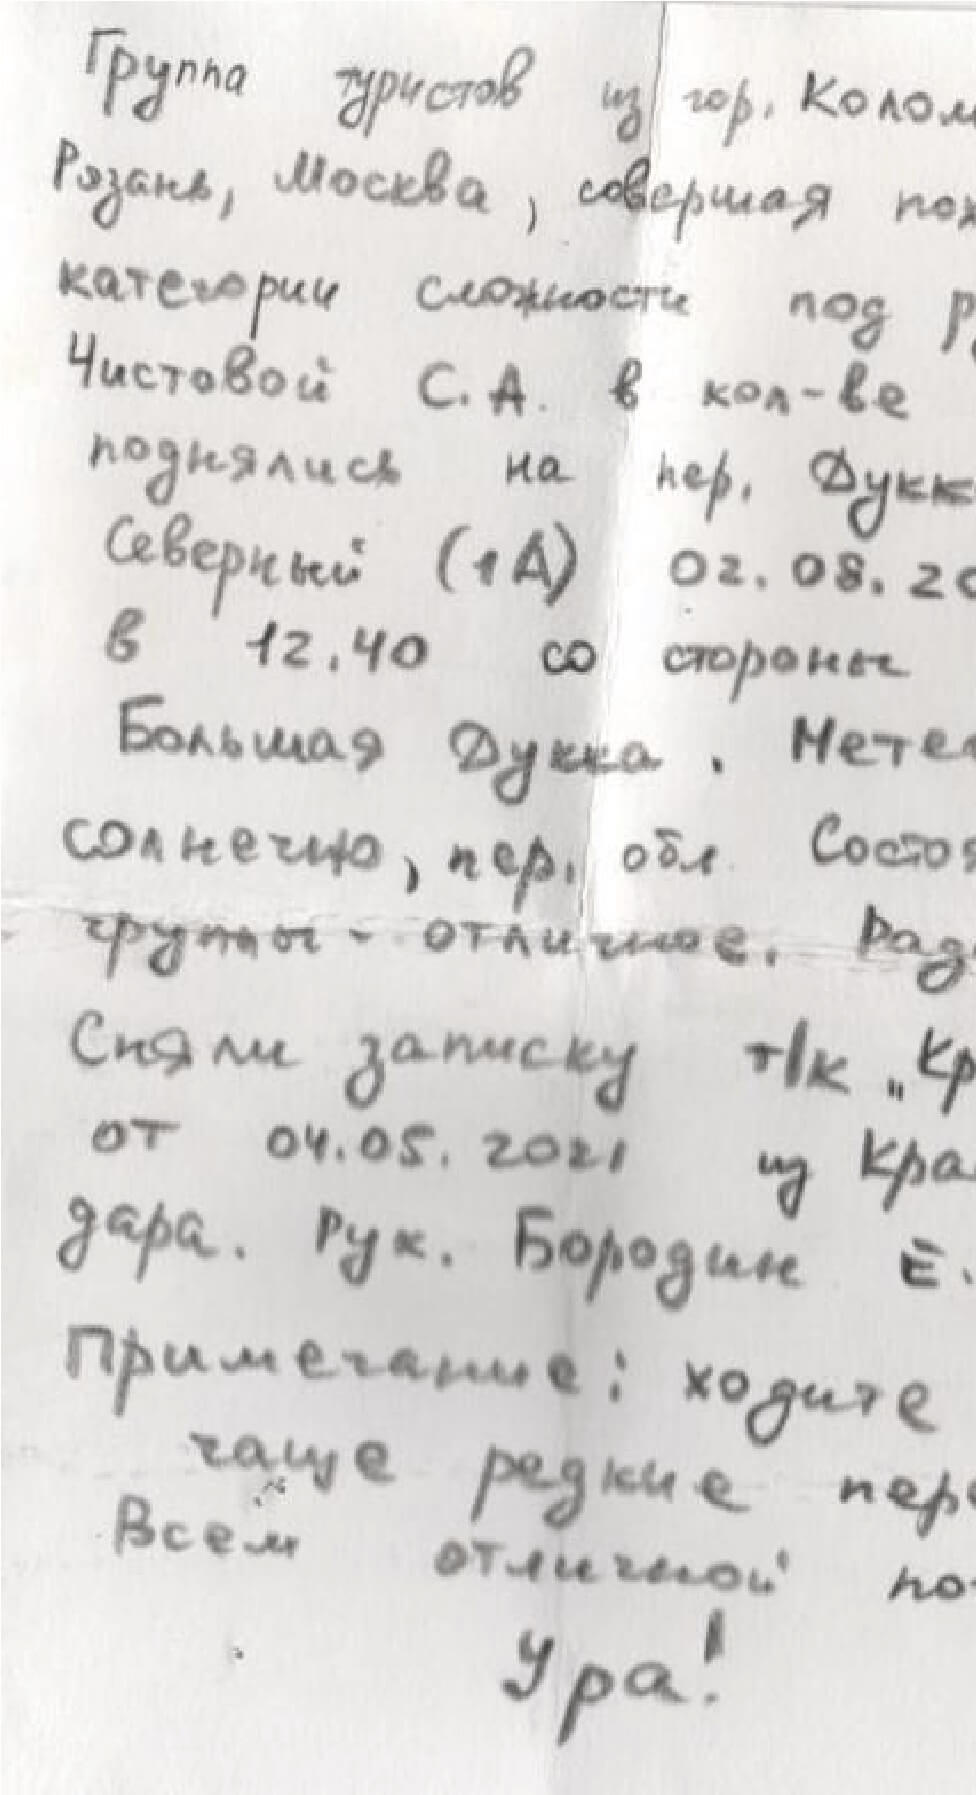 Группа туристов из гор. Колом
Рязань, Москва, совершая пох
категории сложности под р
Чистовой С.А. в кол-ве
поднялись на пер. Дукк
Северный (1А) 02.08.20
в 12.40 со стороны
Большая Дукка. Метео
солнечно, пер. обл Состоя
группы - отличное. Рад
Сняли записку т/к „Кр
от 04.05.2021 из Кра
дара. Рук. Бородин Е.
Примечание: ходите
чаще редкие пере
Всем отличной по
Ура!